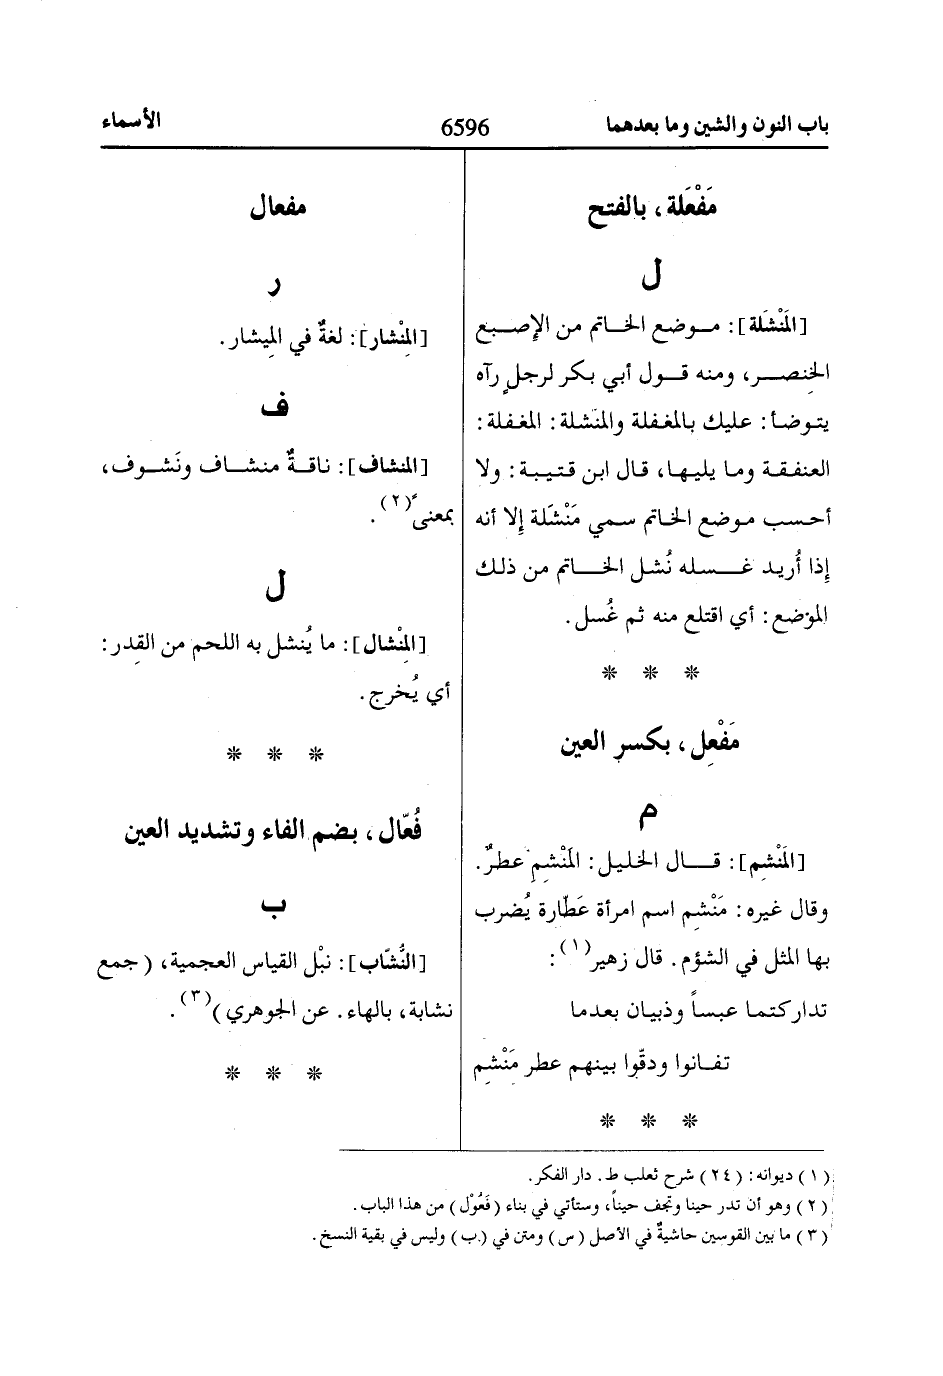 باب النون والشين وما بعدهما
6596
الأسماء
مَفْعَلة، بالفتح
ل
[المَنْشَلة]: موضع الخاتم من الإصبع
الخِنصر، ومنه قول أبي بكر لرجلٍ رآه
يتوضأ: عليك بالمغفلة والمنْشلة: المغفلة:
العنفقة وما يليها، قال ابن قتيبة: ولا
أحسب موضع الخاتم سمي مَنْشَلة إلا أنه
إذا أُريد غسله نُشل الخاتم من ذلك
الموْضع: أي اقتلع منه ثم غُسل.
* * *
مَفْعِل، بكسر العين
م
[المَنْشِم]: قال الخليل: المَنْشِم عطرٌ.
وقال غيره: مَنْشِم اسم امرأة عَطّارة يُضرب
بها المثل في الشؤم. قال زهير(١):
تداركتما عبساً وذبيان بعدما
تفانوا ودقّوا بينهم عطر مَنْشِم
* * *
مفعال
ر
[المِنْشار]: لغةٌ في المِيشار.
ف
[المنشاف]: ناقةٌ منشاف ونَشوف،
بمعنىً(٢).
ل
[المِنْشال]: ما يُنشل به اللحم من القِدر:
أي يُخرج.
* * *
فُعّال، بضم الفاء وتشديد العين
ب
[النُّشّاب]: نبْل القياس العجمية، (جمع
نشابة، بالهاء. عن الجوهري)(٣).
* * *
(١) ديوانه: (٢٤) شرح ثعلب ط. دار الفكر.
(٢) وهو أن تدر حينا وتجف حيناً، وستأتي في بناء (فَعُوْل) من هذا الباب.
(٣) ما بين القوسين حاشيةٌ في الأصل (س) ومتن في (ب) وليس في بقية النسخ.